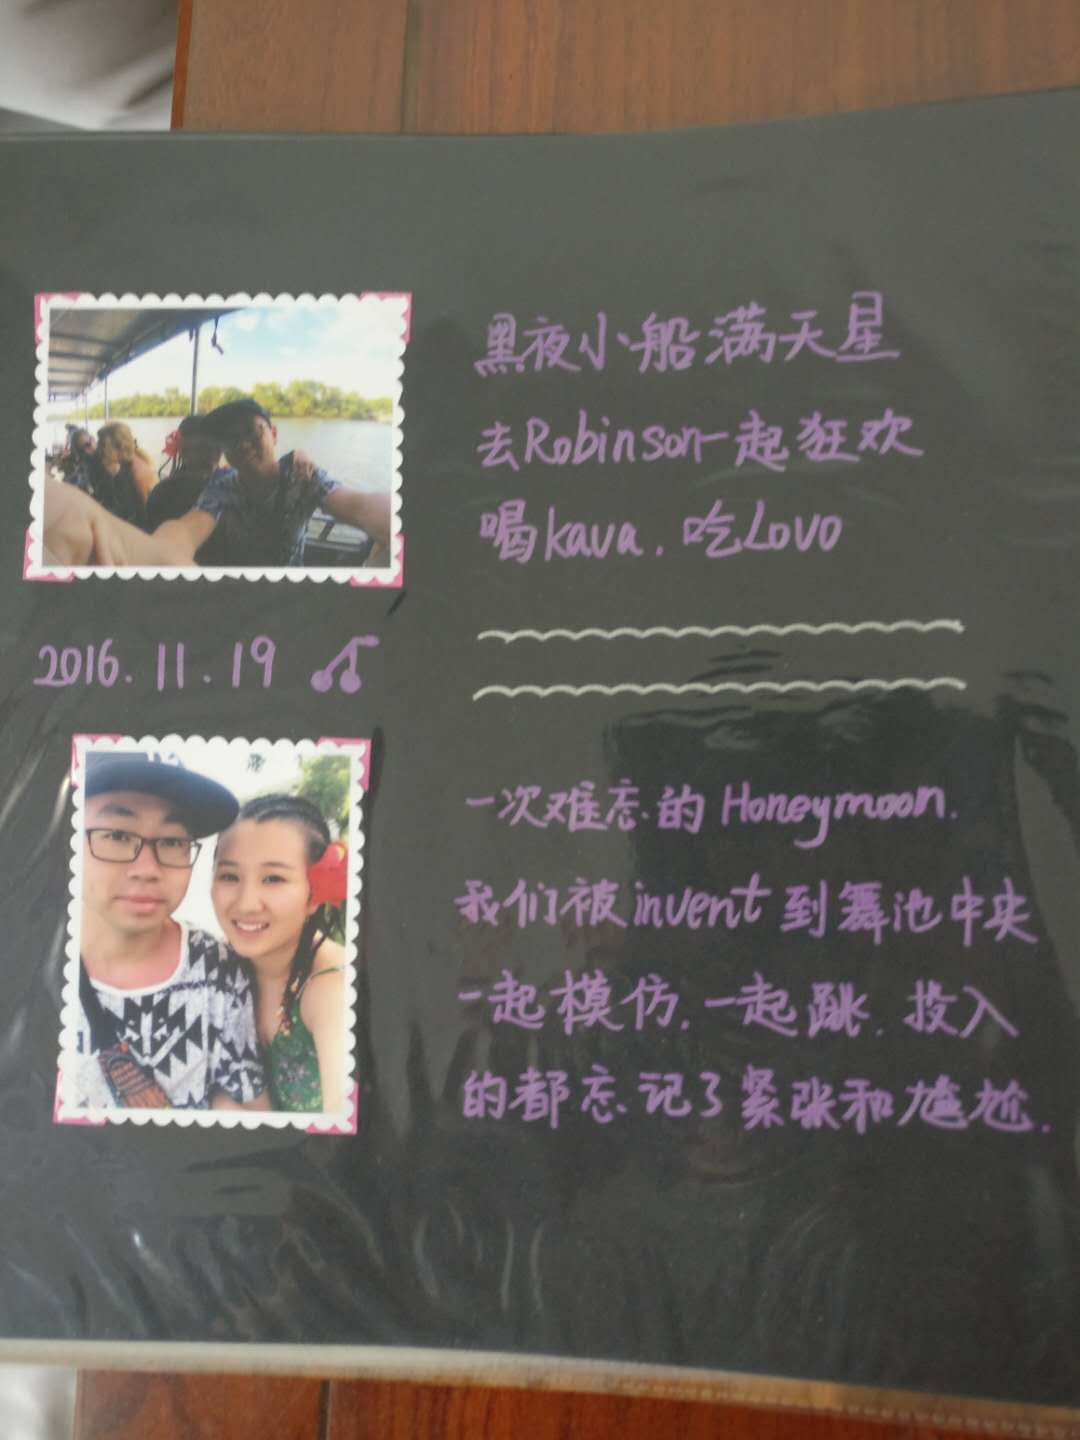 黑夜小船满天星
去Robinson一起狂欢
喝kava.吃Lovo
2016.11.19
一次难忘的Honeymoon.
我们被invent到舞池中央
一起模仿.一起跳.投入
的都忘记了紧张和尴尬.